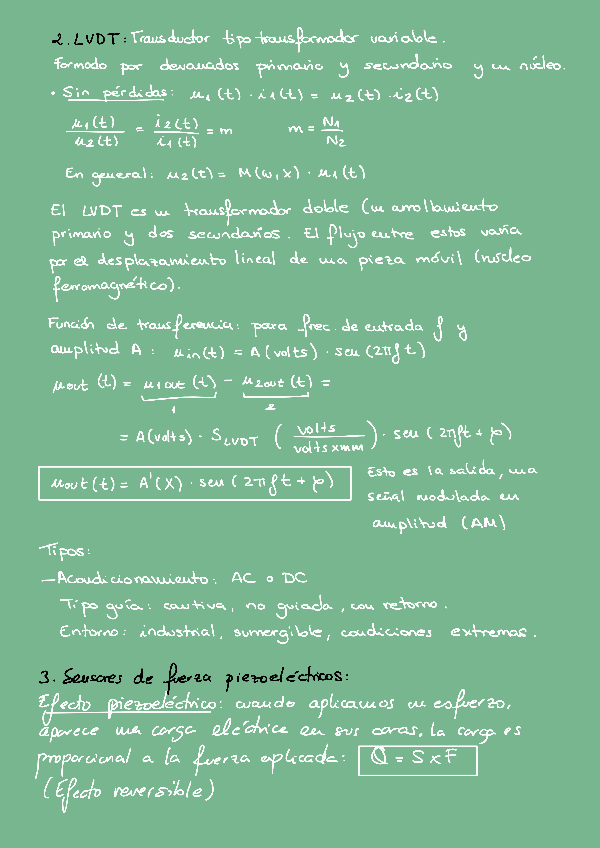 2. LVDT: Transductor tipo transformador variable.
Formado por devanados primario y secundario y un núcleo.
• Sin pérdidas: u1(t) · i1(t) = u2(t) · i2(t)
u1(t)/u2(t) = i2(t)/i1(t) = m    m = N1/N2
En general: u2(t) = M(w,x) · u1(t)
El LVDT es un transformador doble (un arrollamiento
primario y dos secundarios. El flujo entre estos varía
por el desplazamiento lineal de una pieza móvil (núcleo
ferromagnético).
Función de transferencia: para frec. de entrada f y
amplitud A: uin(t) = A(volts) · sen(2πft)
uout(t) = u1out(t) - u2out(t) =
1 2
= A(volts) · SLVDT (volts/volts×mm) · sen(2πft + φ)
uout(t) = A'(X) · sen(2πft + φ)
Esto es la salida, una
señal modulada en
amplitud (AM)
Tipos:
- Acondicionamiento: AC o DC
Tipo guía: cautiva, no guiada, con retorno.
Entorno: industrial, sumergible, condiciones extremas.
3. Sensores de fuerza piezoeléctricos:
Efecto piezoeléctrico: cuando aplicamos un esfuerzo,
aparece una carga eléctrica en sus caras, la carga es
proporcional a la fuerza aplicada: Q = S x F
(Efecto reversible)